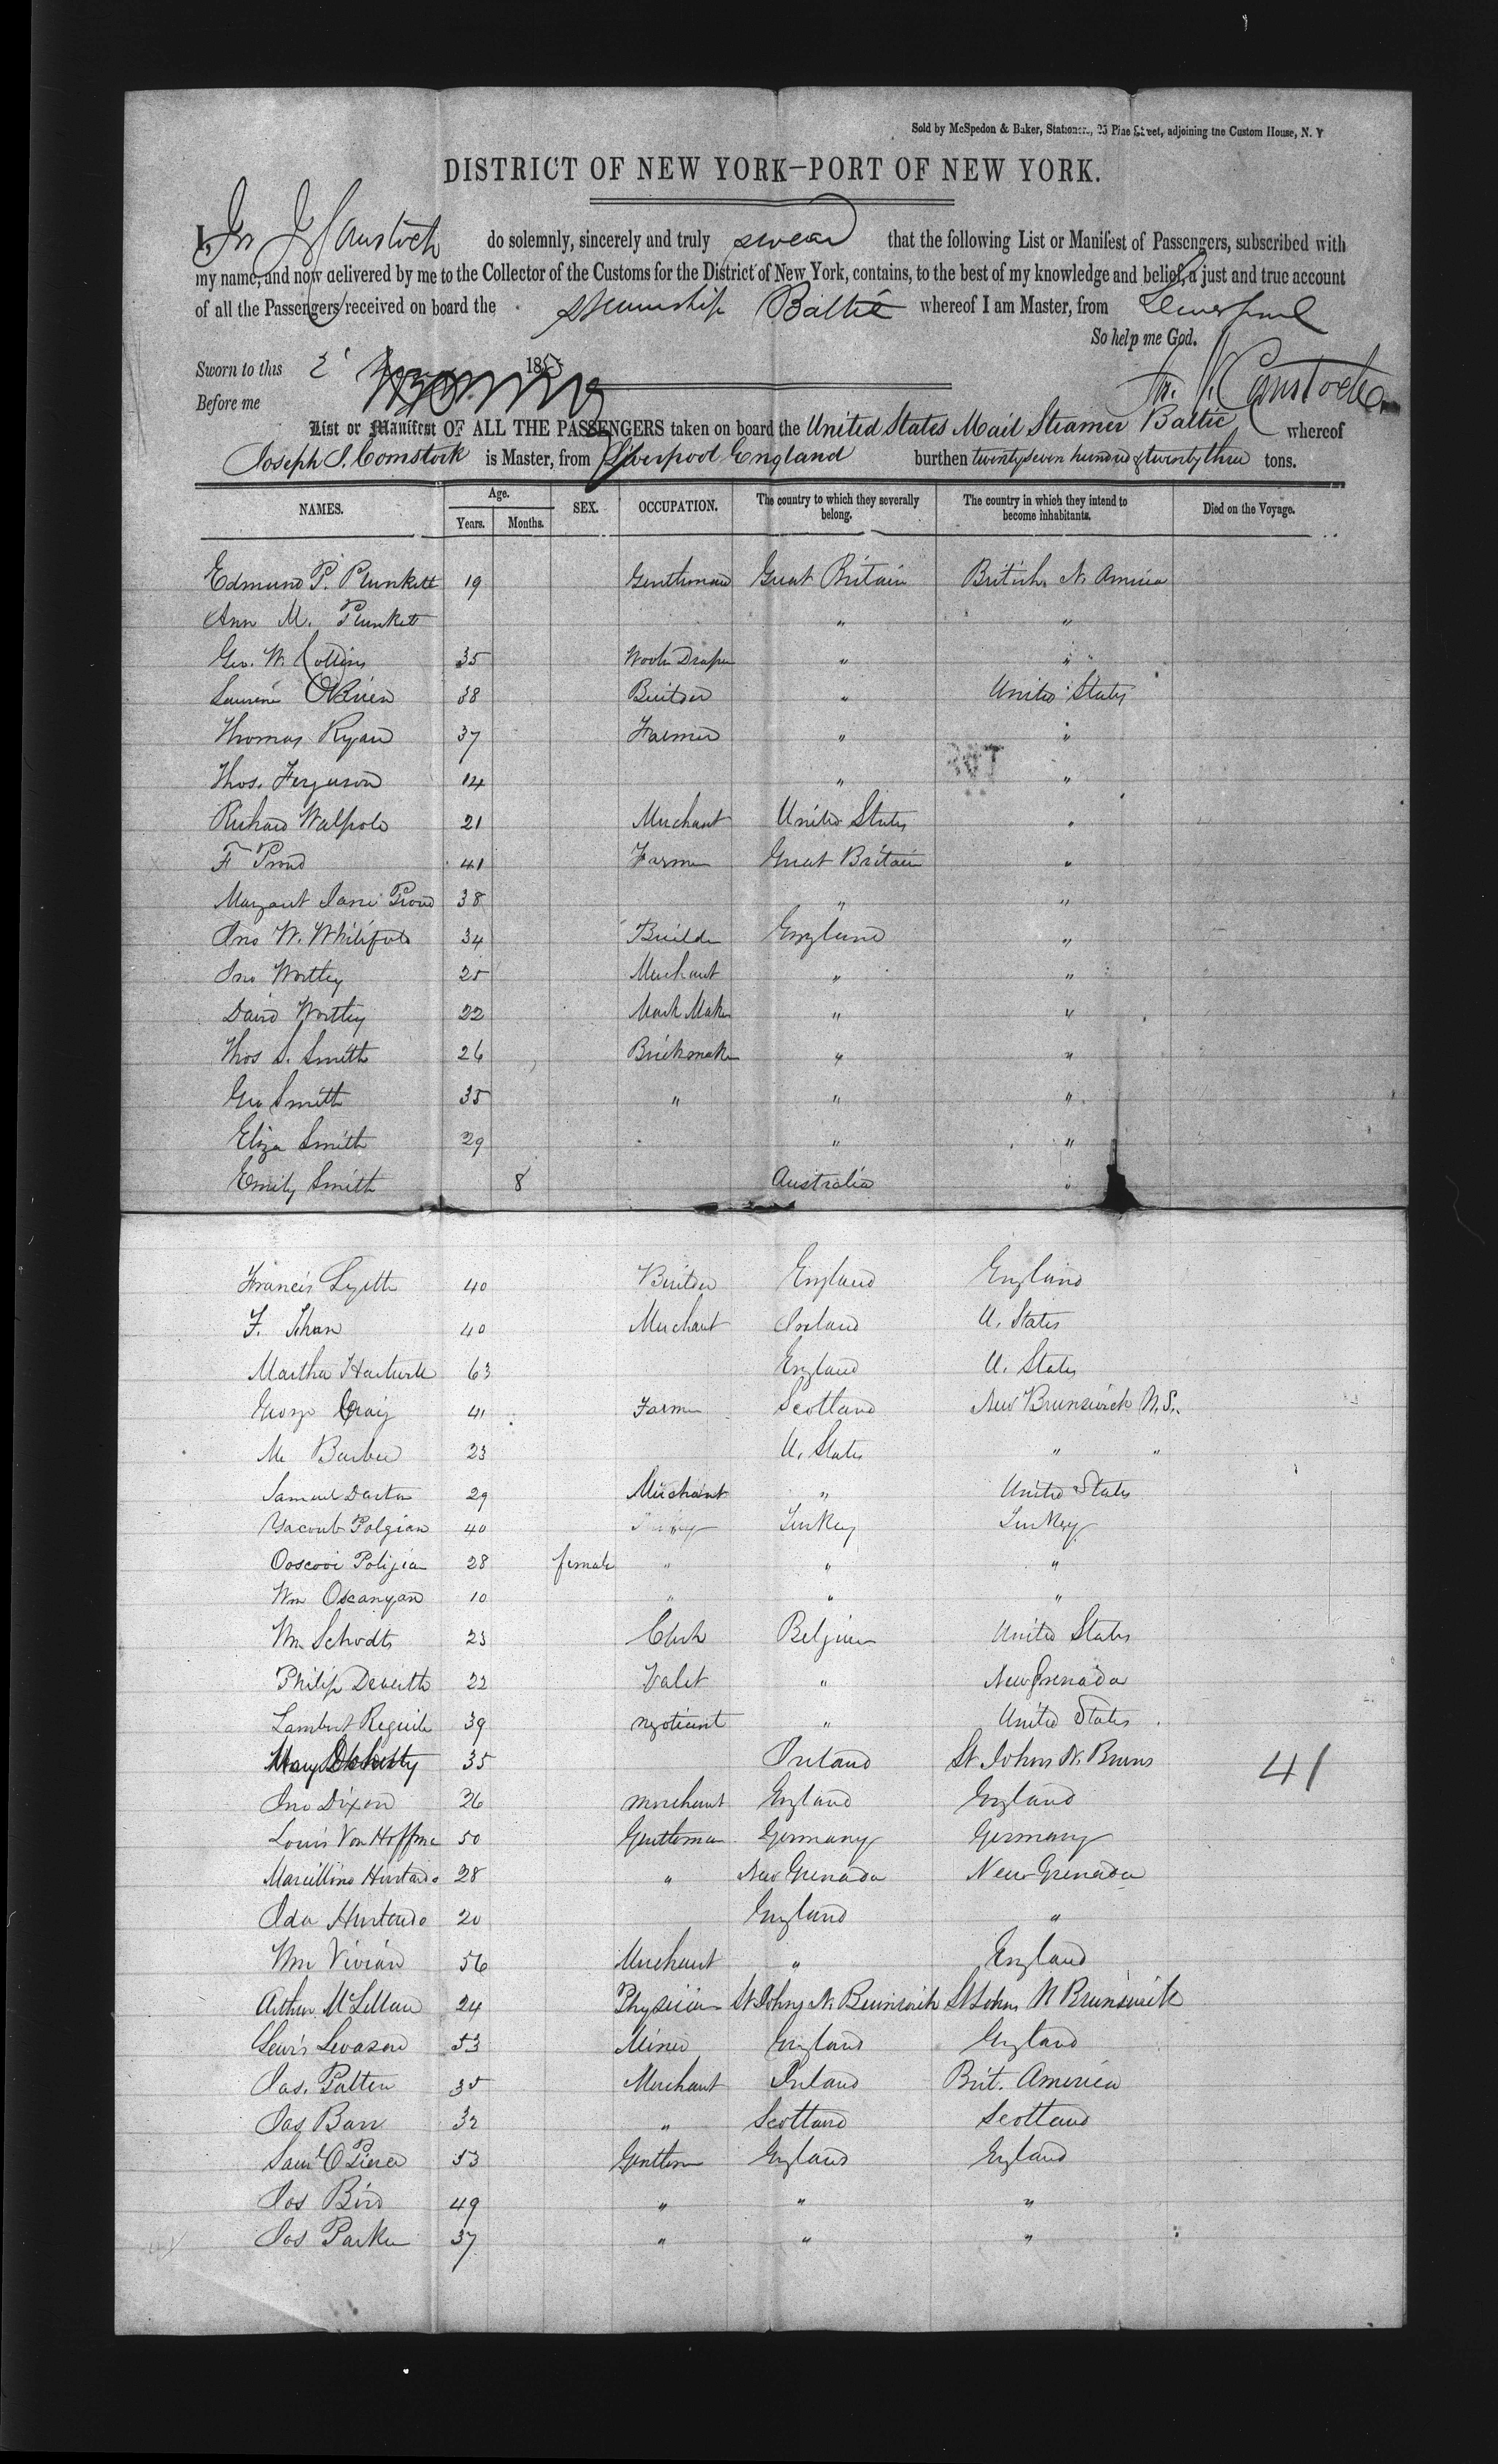 Sold by McSpedon & Baker, Stationers, 25 Pine Street, adjoining the Custom House, N. Y
DISTRICT OF NEW YORK—PORT OF NEW YORK.
I, Jos J Comstock do solemnly, sincerely and truly swear that the following List or Manifest of Passengers, subscribed with
my name, and now delivered by me to the Collector of the Customs for the District of New York, contains, to the best of my knowledge and belief, a just and true account
of all the Passengers received on board the steamship Baltic whereof I am Master, from Liverpool
So help me God.
Sworn to this 2 185
Jos. J. Comstock
Before me
List or Manifest OF ALL THE PASSENGERS taken on board the United States Mail Steamer Baltic whereof
Joseph J. Comstock is Master, from Liverpool England burthen twenty seven hundred & twenty three tons.
NAMES. Age. Years. Months. SEX. OCCUPATION. The country to which they severally belong. The country in which they intend to become inhabitants. Died on the Voyage.
Edmund P. Plunkett 19 Gentleman Great Britain British N. America
Ann M. Plunkett " "
Geo. W. Collins 35 Woolen Draper " "
Laurence O'Brien 38 Builder " United States
Thomas Ryan 37 Farmer " "
Thos. Ferguson 14 " "
Richard Walpole 21 Merchant United States "
F Proud 41 Farmer Great Britain "
Margaret Jane Proud 38 " "
Jno W. Whitifold 34 Builder England "
Jno Wortley 25 Merchant " "
David Wortley 22 Maker " "
Thos S. Smith 26 Brickmaker " "
Geo Smith 35 " " "
Eliza Smith 29 " "
Emily Smith 8 Australia "
Francis Lyette 40 Builder England England
F. 40 Merchant Ireland U. States
Martha 63 England U. States
George Craig 41 Farmer Scotland New Brunswick N.S.
M Barber 23 U. States " "
Samuel Darton 29 Merchant " United States
Yacoub Polgian 40 Turkey Turkey
Polijian 28 female " " "
Wm Oscanyan 10 " " "
Wm Schodts 23 Clerk Belgium United States
Philip 22 Valet " New Grenada
Lambert Reguile 39 negotient " United States
Mary Doherty 35 Ireland St. Johns N. Bruns 41
Jno Dixon 26 merchant England England
Louis Von Hoffman 50 Gentleman Germany Germany
Marcillino Hurtado 28 " New Grenada New Grenada
Ida Hurtado 20 England "
Wm Vivian 56 Merchant " England
Arthur McLellan 24 Physician St Johns N. Brunswick St Johns N Brunswick
Lewis 53 Miner England England
Jas. Patten 35 Merchant Ireland Brit. America
Jas Barr 32 " Scotland Scotland
Saml O Pierce 53 Gentlem England England
Jos Bird 49 " " "
Jos Parker 37 " " "